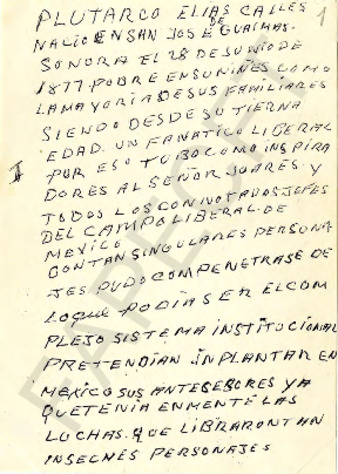 1
PLUTARCO ELIAS CALLES
NACIO EN SAN JOSÉ DE GUAIMAS.
SONORA EL 28 DE JUNIO DE
1877. POBRE EN SU NIÑES COMO
LA MAYORIA DE SUS FAMILIARES
SIENDO DESDE SU TIERNA
EDAD. UN FANATICO LIBERAL
I POR ESO TUBO COMO INSPIRA
DORES AL SEÑOR JUARES. Y
TODOS LOS CONNOTADOS JEFES
DEL CAMPO LIBERAL. DE
MEXICO
CON TAN SINGULARES PERSONA
JES PUDO COMPENETRASE DE
LO QUE PODIA SER EL COM
PLEJO SISTEMA INSTITUCIONAL
PRETENDIAN INPLANTAR EN
MEXICO SUS ANTESESORES YA
QUE TENIA EN MENTE LAS
LUCHAS. QUE LIBRARON TAN
INSECNES PERSONAJES
FAPECFT